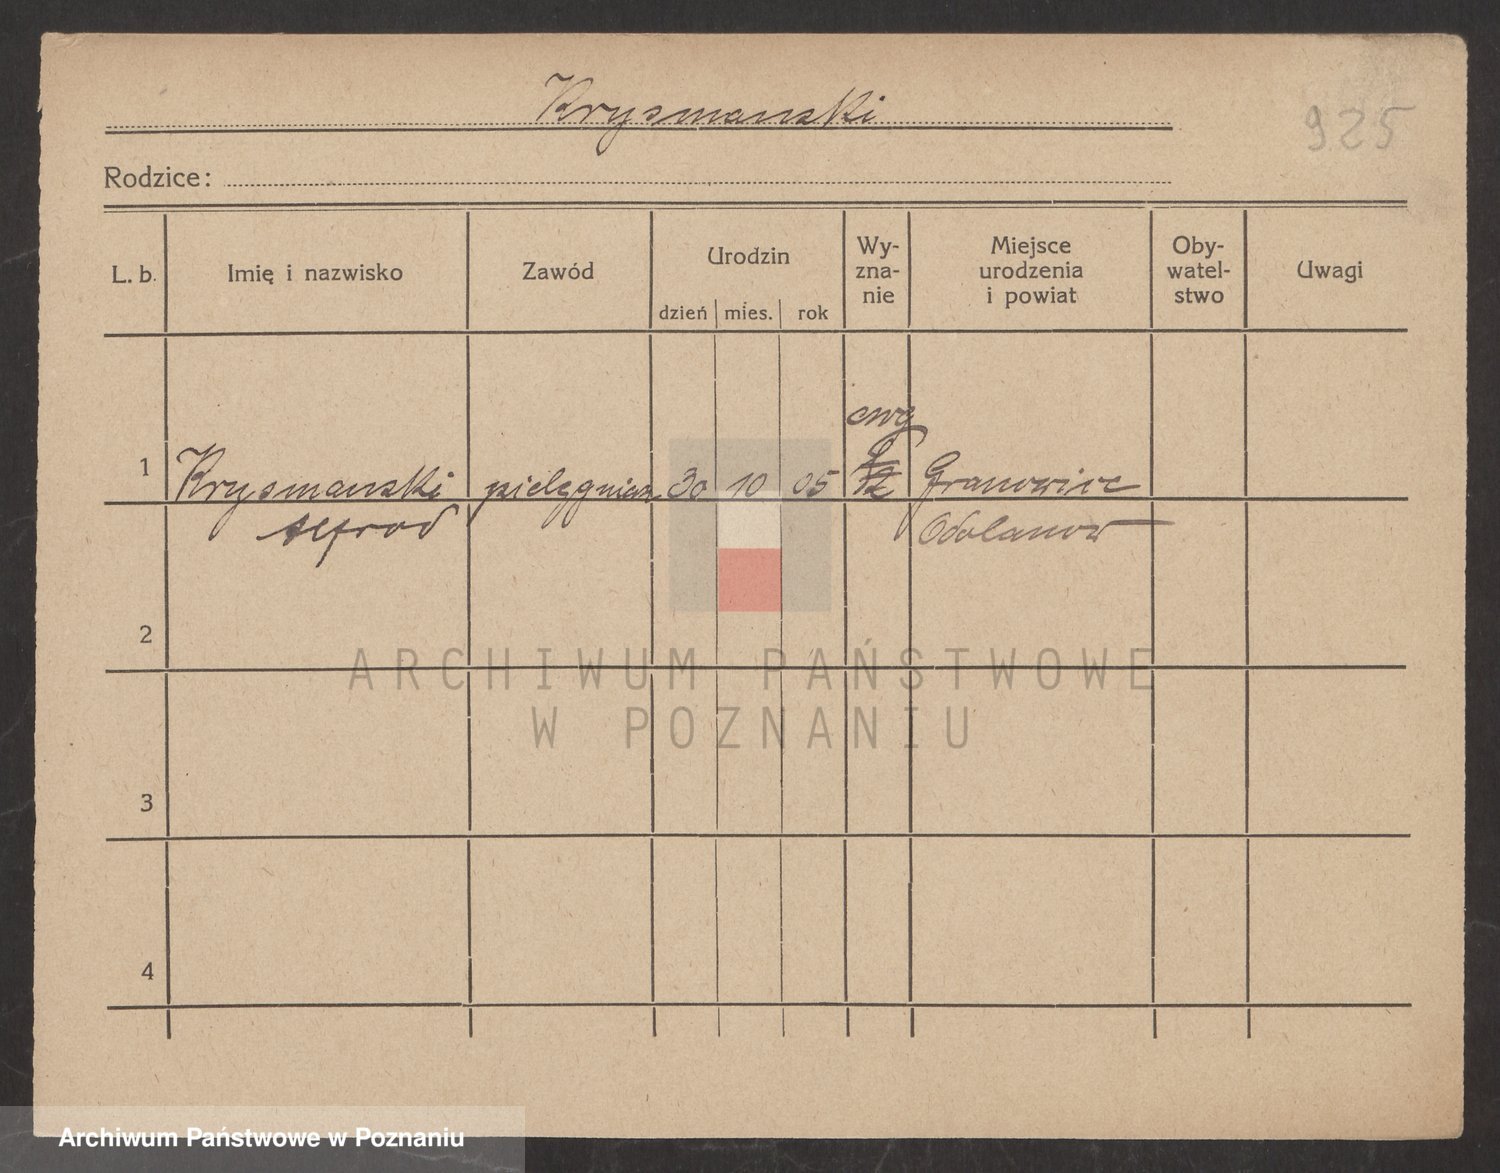 Krysmanski
925
Rodzice:
L. b.
Imię i nazwisko
Zawód
Urodzin
dzień mies. rok
Wy-
zna-
nie
Miejsce
urodzenia
i powiat
Oby-
watel-
stwo
Uwagi
ewg
1 Krysmanski pielęgniarz 30 10 05 Granowiec
Alfred Odolanow
2
ARCHIWUM PAŃSTWOWE
W POZNANIU
3
4
Archiwum Państwowe w Poznaniu